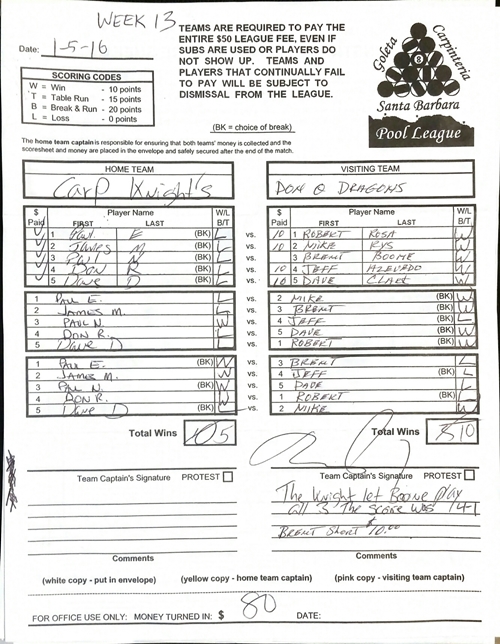 WEEK 13
Date: 1-5-16
TEAMS ARE REQUIRED TO PAY THE
ENTIRE $50 LEAGUE FEE, EVEN IF
SUBS ARE USED OR PLAYERS DO
NOT SHOW UP. TEAMS AND
PLAYERS THAT CONTINUALLY FAIL
TO PAY WILL BE SUBJECT TO
DISMISSAL FROM THE LEAGUE.
(BK = choice of break)
Goleta Carpinteria
8
Santa Barbara
Pool League
SCORING CODES
W = Win - 10 points
T = Table Run - 15 points
B = Break & Run - 20 points
L = Loss - 0 points
The home team captain is responsible for ensuring that both teams' money is collected and the
scoresheet and money are placed in the envelope and safely secured after the end of the match.
HOME TEAM VISITING TEAM
Carp Knight's DON Q DRAGONS
$ Paid Player Name FIRST LAST W/L B/T $ Paid Player Name FIRST LAST W/L B/T
1 E (BK) L vs. 10 1 ROBERT ROSA W
2 JAMES M (BK) L vs. 10 2 MIKE RYS W
3 PAUL N (BK) L vs. 3 BRENT BOONE W
4 DON R (BK) L vs. 10 4 JEFF AZEVEDO W
5 DAVE D (BK) L vs. 10 5 DAVE W
1 PAUL E. L vs. 2 MIKE (BK) W
2 JAMES M. L vs. 3 BRENT (BK) W
3 PAUL N. W vs. 4 JEFF (BK) L
4 DON R. vs. 5 DAVE (BK) W
5 DAVE D L vs. 1 ROBERT (BK) W
1 PAUL E. (BK) W vs. 3 BRENT L
2 JAMES M. W vs. 4 JEFF (BK) L
3 PAUL N. (BK) W vs. 5 DAVE L
4 DON R. W vs. 1 ROBERT (BK) L
5 DAVE D (BK) L vs. 2 MIKE W
Total Wins 5 Total Wins 10
Team Captain's Signature PROTEST Team Captain's Signature PROTEST
The Knight let Boone Play
all 3 The score was 14-1
BRENT Short $10.00
Comments Comments
(white copy - put in envelope) (yellow copy - home team captain) (pink copy - visiting team captain)
FOR OFFICE USE ONLY: MONEY TURNED IN: $ 80 DATE: